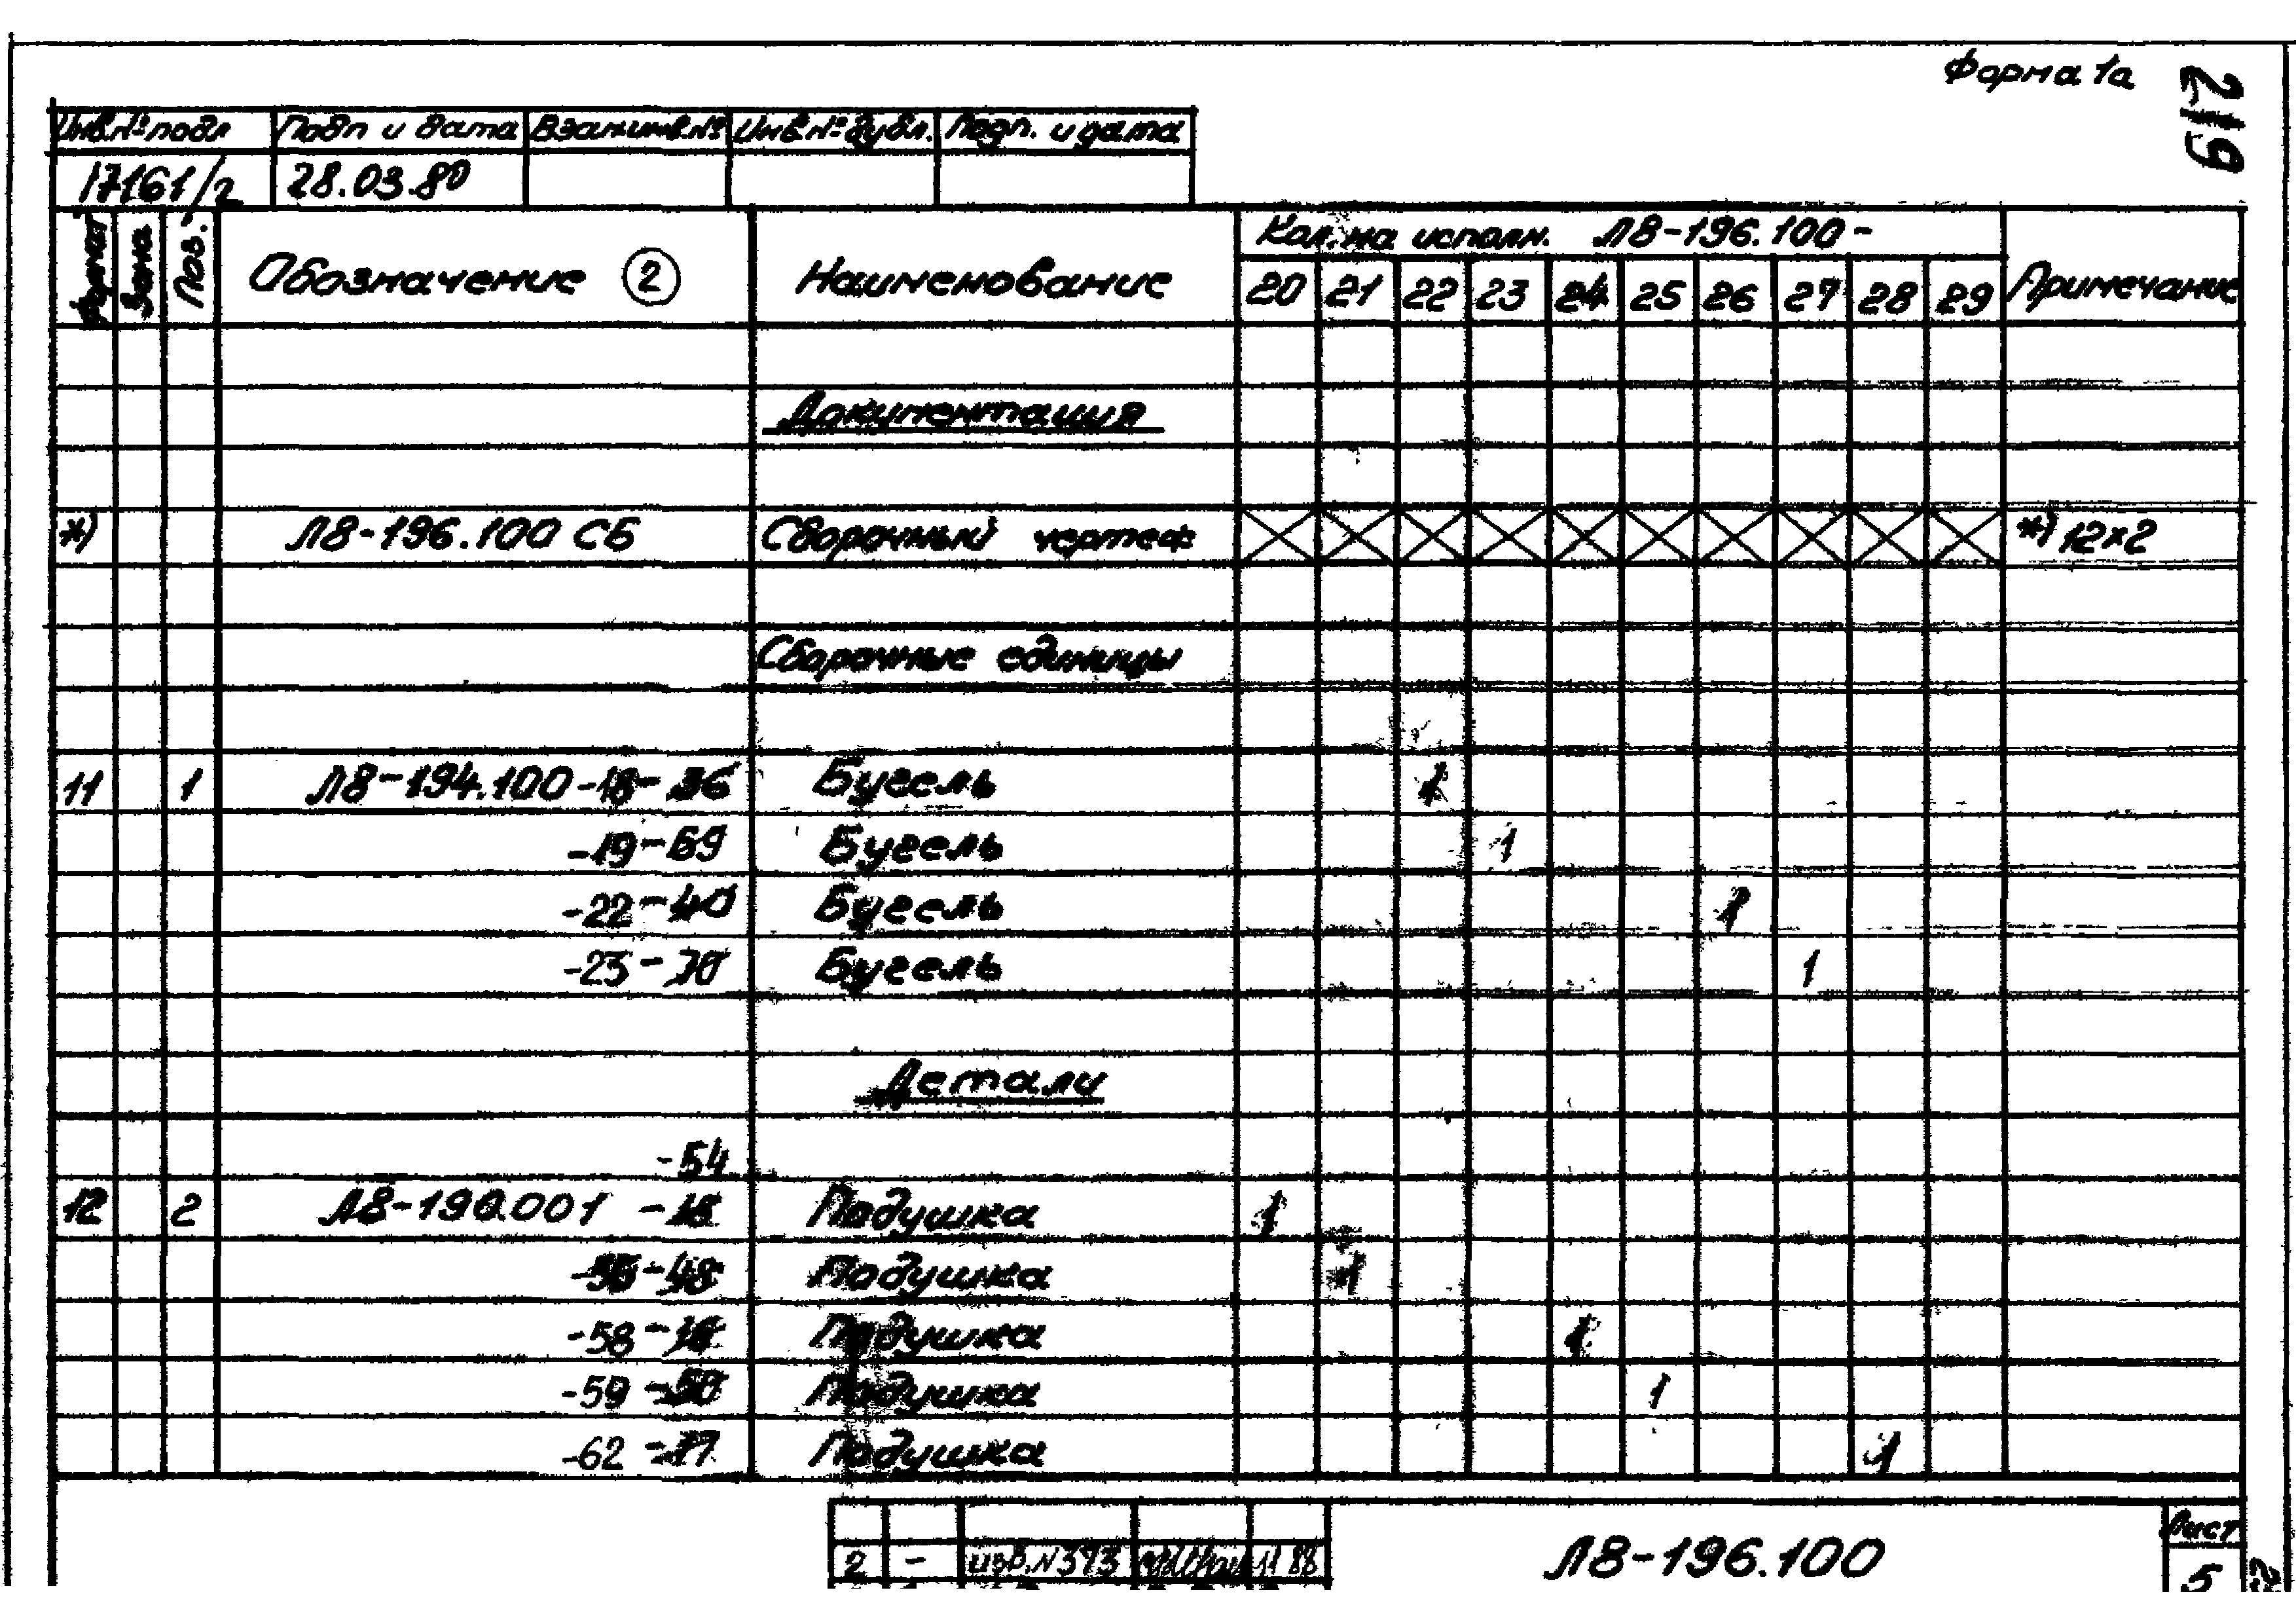 Форма 1а
219
Инв.№ подл Подп и дата Взам.инв.№ Инв.№ дубл. Подп. и дата
17161/2 28.03.80
Формат Зона Поз. Обозначение 2 Наименование Кол. на исполн. Л8-196.100- Примечание
20 21 22 23 24 25 26 27 28 29
Документация
*) Л8-196.100 СБ Сборочный чертеж *) 12×2
Сборочные единицы
11 1 Л8-194.100-18- 36 Бугель 1
-19-69 Бугель 1
-22-40 Бугель 1
-23-70 Бугель 1
Детали
-54
12 2 Л8-196.001 - Подушка 1
-48 Подушка 1
-58 - Подушка 1
-59 -50 Подушка 1
-62 -17 Подушка 1
2 - изв.№373 11 88 Л8-196.100 Лист
5